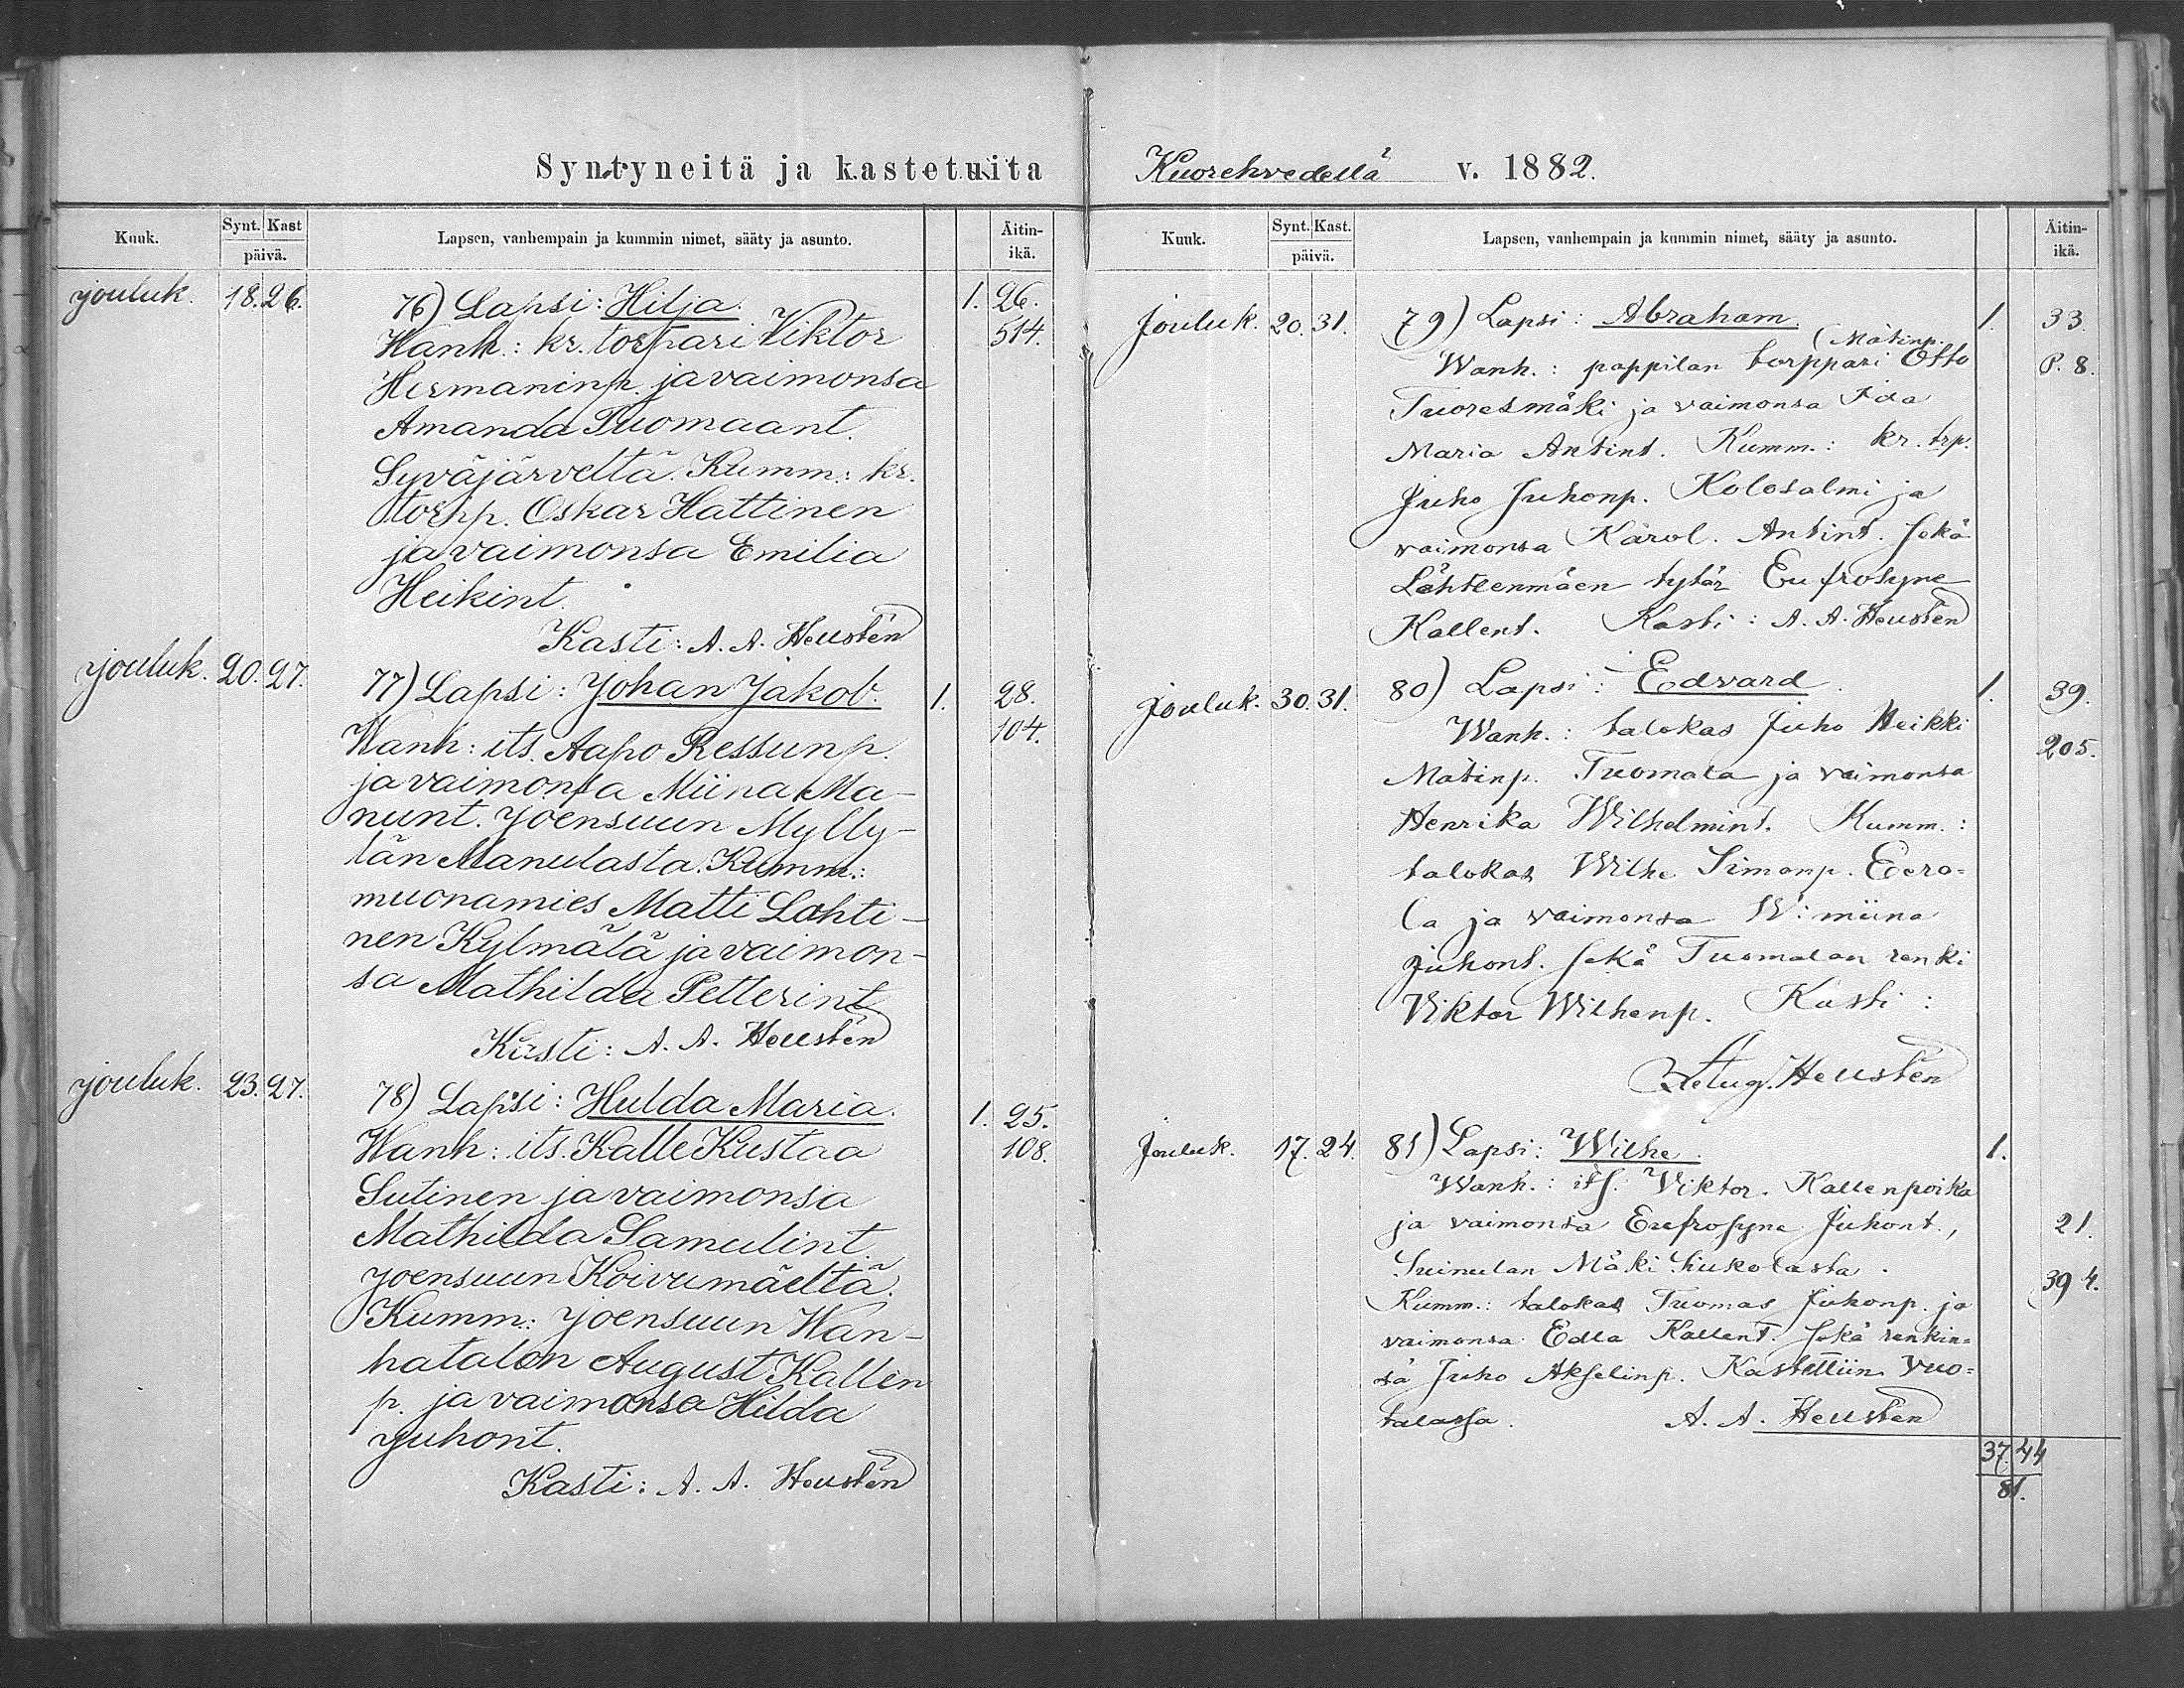 Syntyneitä ja kastetuita
Kuuk. Synt. Kast päivä. Lapsen, vanhempain ja kummin nimet, sääty ja asunto. Äitin-ikä.
jouluk. 18. 26. 76) Lapsi: Hilja. 1. 26.
Wanh.: kr. torpari Viktor 514.
Hermaninp. ja vaimonsa
Amanda Tuomaant.
Syväjärveltä. Kumm.: kr.
torpp. Oskar Hattinen
ja vaimonsa Emilia
Heikint.
Kasti: A. A. Heustén
jouluk. 20. 27. 77) Lapsi: Johan Jakob. 1. 28.
Wanh: its. Aapo Ressunp. 104.
ja vaimonsa Miina Ma-
nunt. Joensuun Mylly-
län Manulasta. Kumm.:
muonamies Matti Lahti-
nen Kylmälä ja vaimon-
sa Mathilda Petterint
Kasti: A. A. Heustén
jouluk. 23. 27. 78) Lapsi: Hulda Maria. 1. 25.
Wanh: its. Kalle Kustaa 108.
Sutinen ja vaimonsa
Mathilda Samulint.
Joensuun Koivumäeltä.
Kumm: Joensuun Wan-
hatalon August Kallen
p. ja vaimonsa Hilda
Juhont.
Kasti: A. A. Heustén
Kuorehvedellä v. 1882.
Kuuk. Synt. Kast. päivä. Lapsen, vanhempain ja kummin nimet, sääty ja asunto. Äitin-ikä.
Jouluk. 20. 31. 79) Lapsi: Abraham. 1. 33.
(Matinp.
Wanh.: pappilan torppari Otto P. 8.
Tuoresmäki ja vaimonsa Ida
Maria Antint. Kumm.: kr. trp.
Juho Juhonp. Kolosalmi ja
vaimonsa Karol. Antint. sekä
Lähteenmäen tytär Eufrosyne
Kallent. Kasti: A. A. Heustén
Jouluk. 30. 31. 80) Lapsi: Edvard. 1. 39.
Wanh.: talokas Juho Heikki 205.
Matinp. Tuomala ja vaimonsa
Henrika Wilhelmint. Kumm.:
talokas Wilhe Simonp. Eero-
la ja vaimonsa W:miina
Juhont. sekä Tuomalan renki
Viktor Wilhenp. Kasti:
Aug. Heustén
Jouluk. 17. 24. 81) Lapsi: Wilhe. 1.
Wanh.: its. Viktor. Kallenpoika
ja vaimonsa Eufrosyne Juhont., 21.
Suinulan Mäki Siukolasta.
394.
Kumm.: talokas Tuomas Juhonp. ja
vaimonsa Edla Kallent. sekä renkin-
sä Juho Akselinp. Kastettiin Vuo-
talassa. A. A. Heustén
37. 44
81.